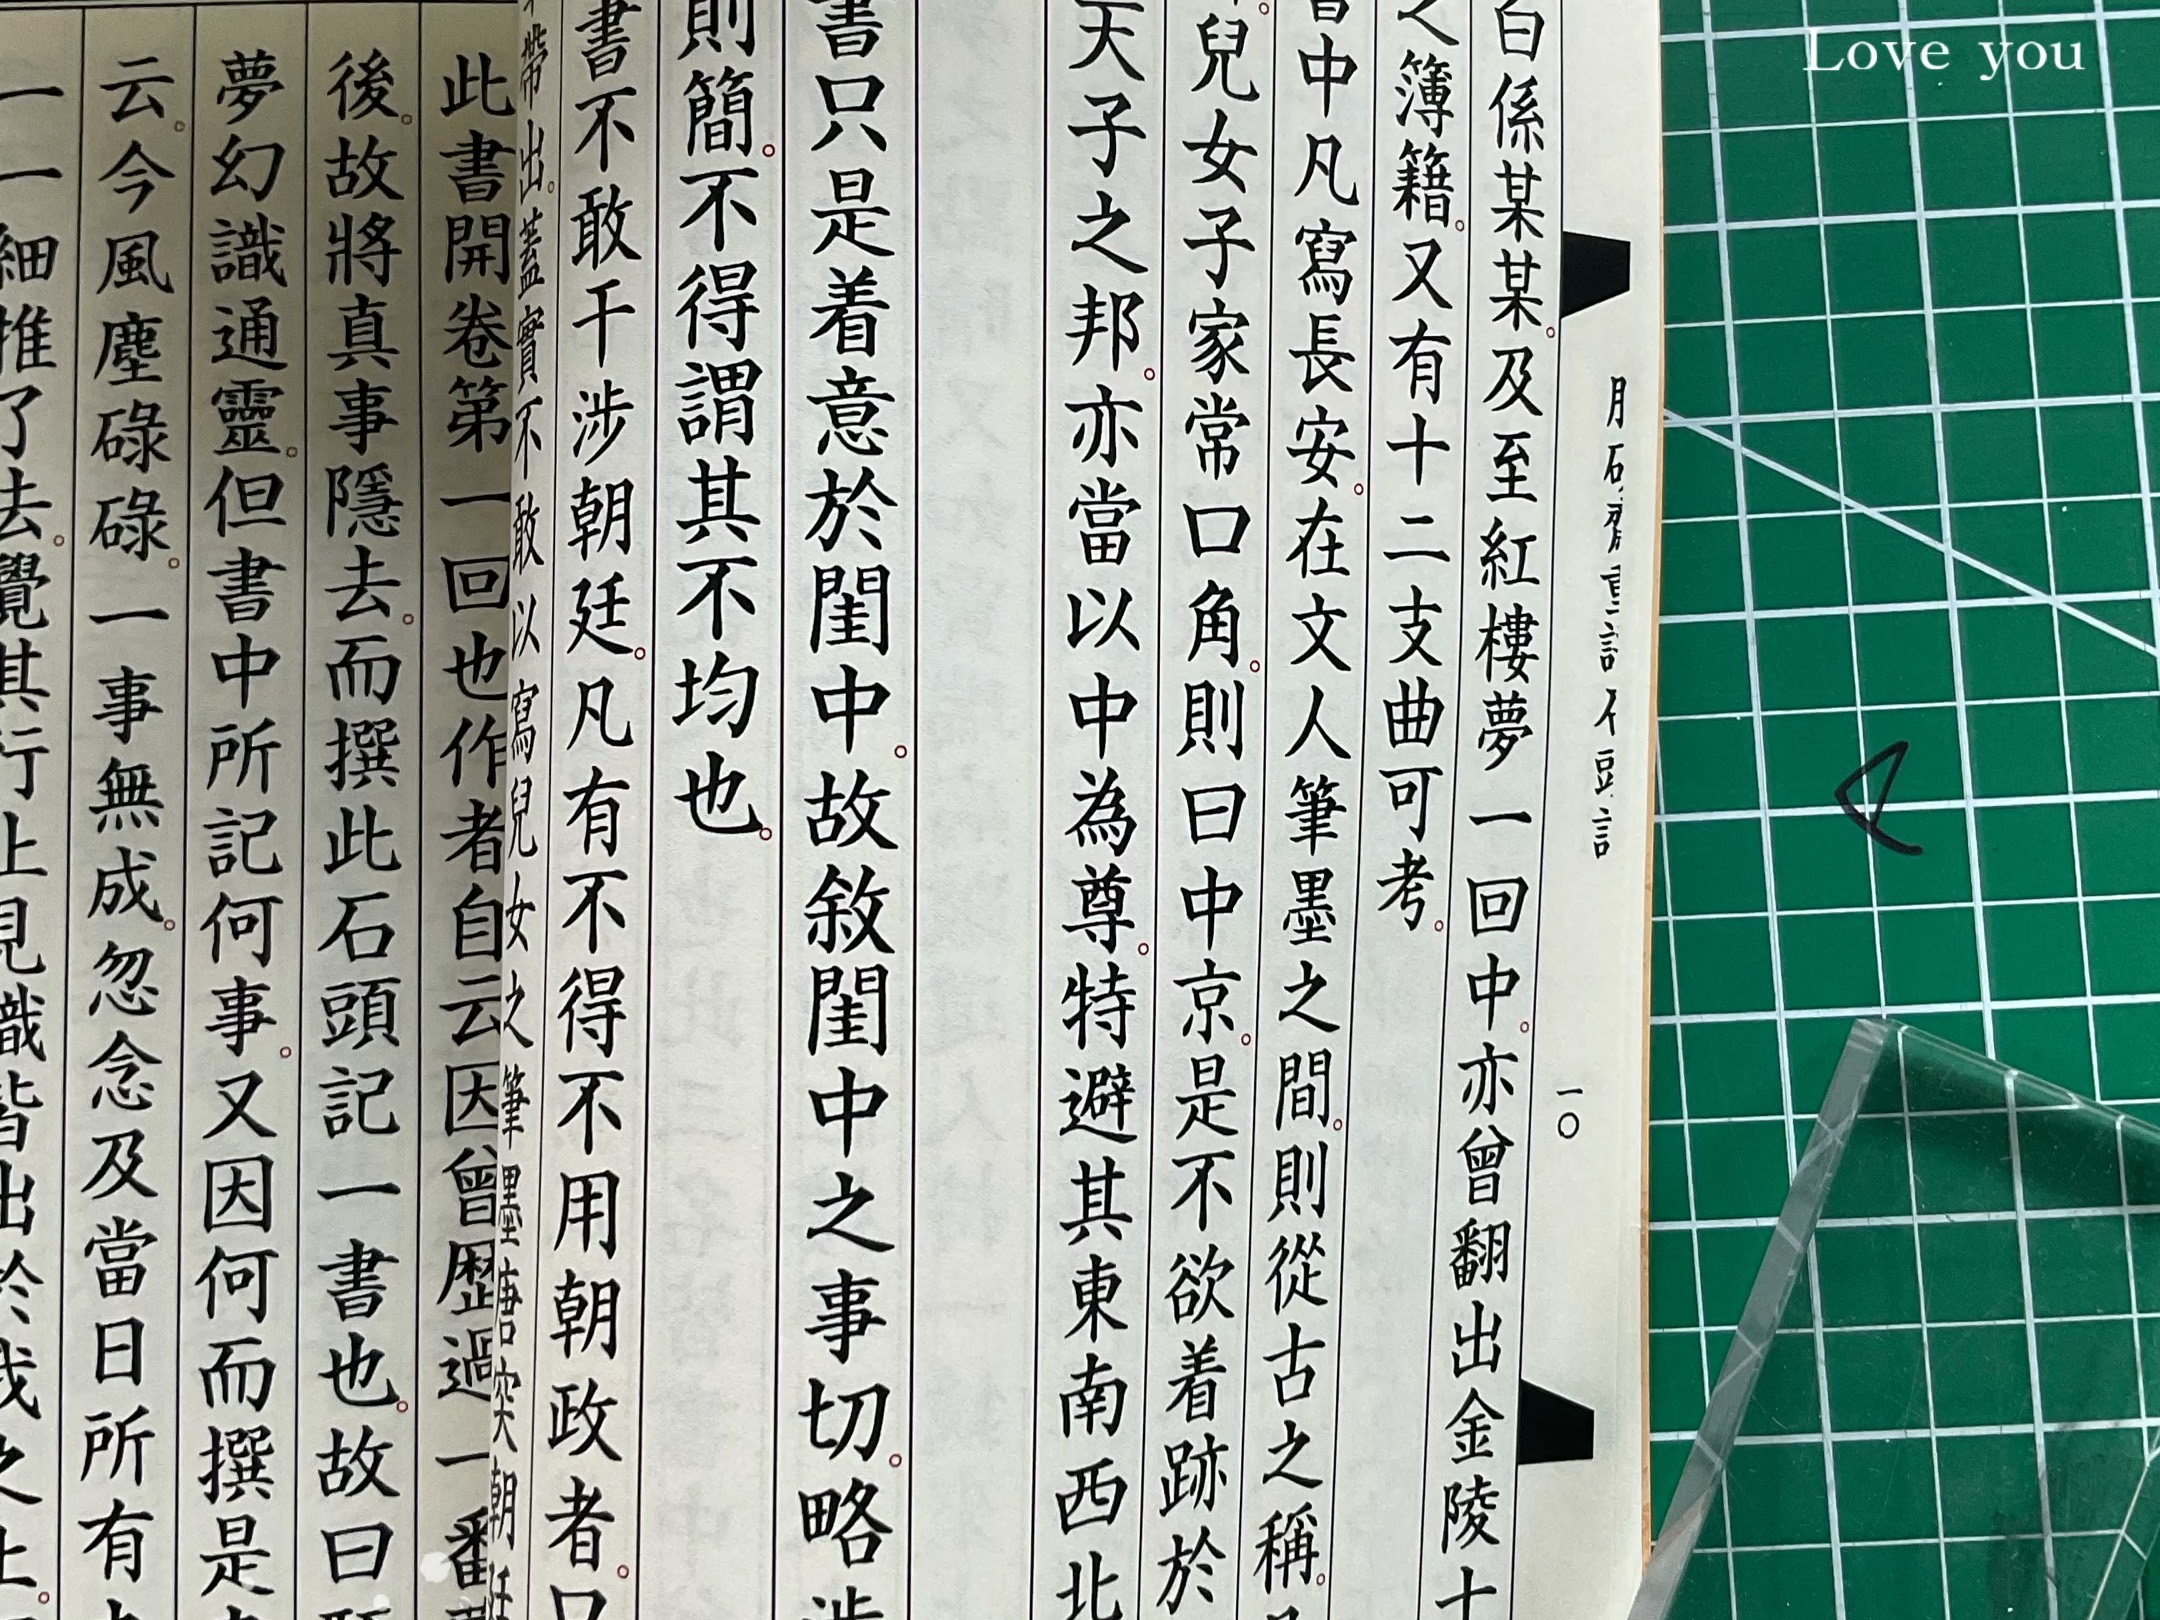 Love you
月硯齋重訂石頭記
一〇
白係某某。及至紅樓夢一回中。亦曾翻出金陵十
之簿籍。又有十二支曲可考。
書中凡寫長安。在文人筆墨之間。則從古之稱。
兒女子家常口角。則曰中京。是不欲着跡於
天子之邦。亦當以中為尊。特避其東南西北
書只是着意於閨中。故敘閨中之事切。略涉
則簡。不得謂其不均也。
書不敢干涉朝廷。凡有不得不用朝政者。只
帶出。蓋實不敢以寫兒女之筆墨唐突朝廷
此書開卷第一回也作者自云因曾歷過一番
後。故將真事隱去。而撰此石頭記一書也。故曰
夢幻識通靈。但書中所記何事。又因何而撰是
云。今風塵碌碌。一事無成。忽念及當日所有
一一細推了去。覺其行止見識皆出於我之上。